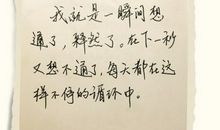 我就是一瞬间想
通了，释然了。在下一秒
又想不通了，每天都在这
样不停的循环中。